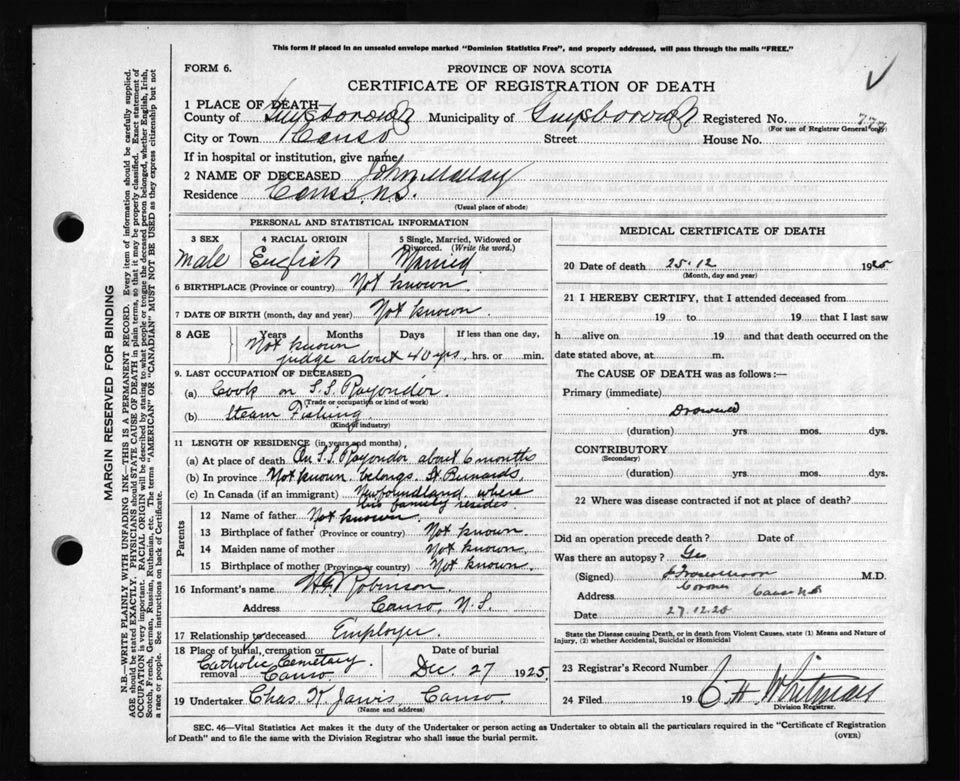 This form if placed in an unsealed envelope marked "Dominion Statistics Free", and properly addressed, will pass through the mails "FREE."
FORM 6.
PROVINCE OF NOVA SCOTIA
CERTIFICATE OF REGISTRATION OF DEATH
1 PLACE OF DEATH—
County of Guysborough Municipality of Guysborough Registered No. 777
(For use of Registrar General only)
City or Town Canso Street House No.
If in hospital or institution, give name
2 NAME OF DECEASED John
Residence Canso, N.S.
(Usual place of abode)
PERSONAL AND STATISTICAL INFORMATION
3 SEX 4 RACIAL ORIGIN 5 Single, Married, Widowed or Divorced. (Write the word.)
Male English Married
6 BIRTHPLACE (Province or country) Not known.
7 DATE OF BIRTH (month, day and year) Not known.
8 AGE Years Months Days If less than one day,
Not known
judge about 40 yrs. hrs. or min.
9. LAST OCCUPATION OF DECEASED
(a) Cook on S.S. Rayondor.
(Trade or occupation or kind of work)
(b) Steam Fishing
(Kind of industry)
11 LENGTH OF RESIDENCE (in years and months)
(a) At place of death On S.S. Rayondor about 6 months
(b) In province Not known. belongs St
(c) In Canada (if an immigrant) Newfoundland. where
his family resides.
Parents
12 Name of father Not known.
13 Birthplace of father (Province or country) Not known.
14 Maiden name of mother Not known.
15 Birthplace of mother (Province or country) Not known.
16 Informant's name Robinson
Address Canso, N.S.
17 Relationship to deceased Employer.
18 Place of burial, cremation or removal Date of burial
Catholic Cemetary.
Canso Dec. 27 1925.
19 Undertaker Chas. Jarvis, Canso
(Name and address)
MEDICAL CERTIFICATE OF DEATH
20 Date of death 25.12 1925
(Month, day and year)
21 I HEREBY CERTIFY, that I attended deceased from
19 to 19 that I last saw
h alive on 19 and that death occurred on the
date stated above, at m.
The CAUSE OF DEATH was as follows:—
Primary (immediate)
Drowned
(duration) yrs. mos. dys.
CONTRIBUTORY
(Secondary)
(duration) yrs. mos. dys.
22 Where was disease contracted if not at place of death?
Did an operation precede death? Date of
Was there an autopsy? Yes
(Signed) M.D.
Coroner
Address Canso N.S.
Date 27.12.25
State the Disease causing Death, or in death from Violent Causes, state (1) Means and Nature of Injury, (2) whether Accidental, Suicidal or Homicidal
23 Registrar's Record Number
24 Filed 19 C. H. Whitman
Division Registrar.
SEC. 46—Vital Statistics Act makes it the duty of the Undertaker or person acting as Undertaker to obtain all the particulars required in the "Certificate of Registration
of Death" and to file the same with the Division Registrar who shall issue the burial permit.
(OVER)
MARGIN RESERVED FOR BINDING
N.B.—WRITE PLAINLY WITH UNFADING INK—THIS IS A PERMANENT RECORD. Every item of information should be carefully supplied.
AGE should be stated EXACTLY. PHYSICIANS should STATE CAUSE OF DEATH in plain terms, so that it may be properly classified. Exact statement of
OCCUPATION is very important. RACIAL ORIGIN will be described by stating to what people or tongue the deceased person belonged, whether English, Irish,
Scotch, French, German, Russian, Ruthenian, etc. The terms "AMERICAN" OR "CANADIAN" MUST NOT BE USED as they express citizenship but not
a race or people. See instructions on back of Certificate.